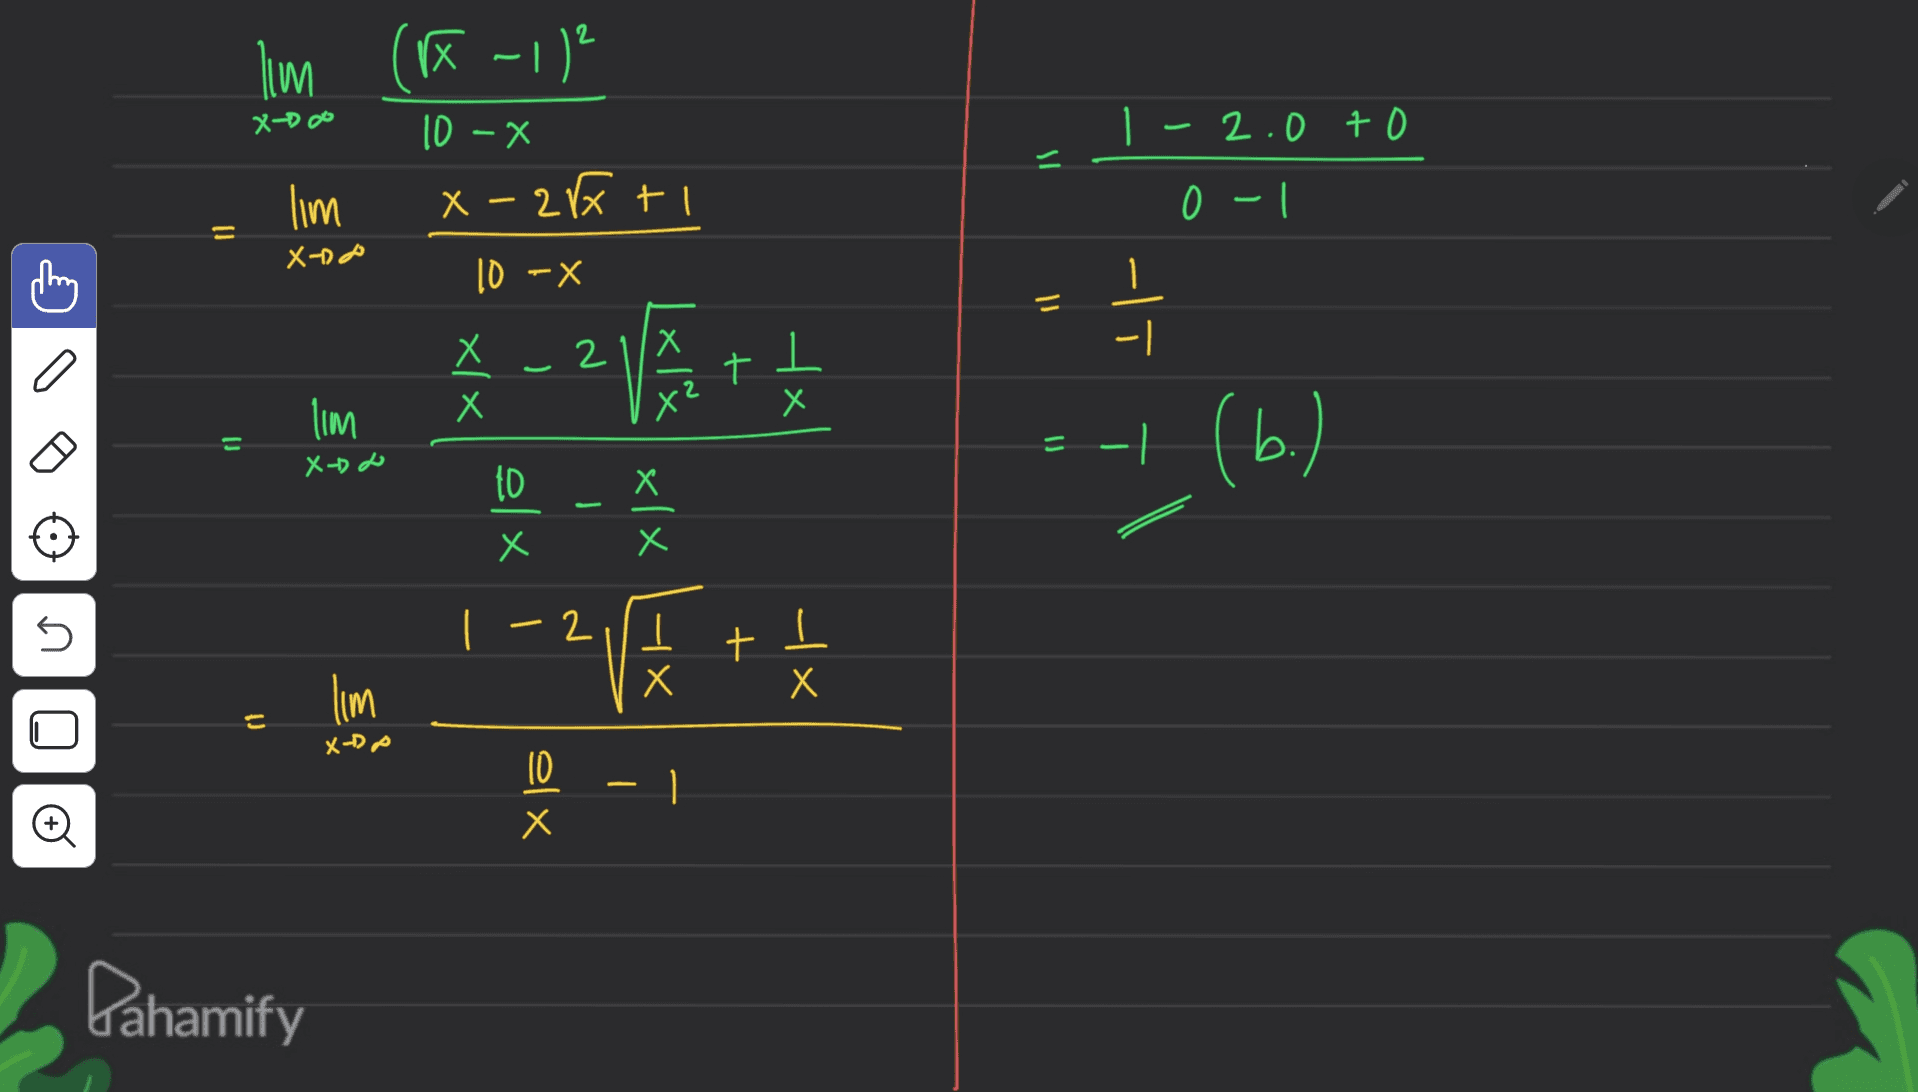 lim (√x - 1)²
x→∞ 10 - x
= lim x - 2√x + 1
x→∞ 10 - x
= lim x/x - 2√(x/x²) + 1/x
x→∞ 10/x - x/x
= lim 1 - 2√(1/x) + 1/x
x→∞ 10/x - 1
= 1 - 2.0 + 0
0 - 1
= 1
-1
= -1 (b.)
Pahamify